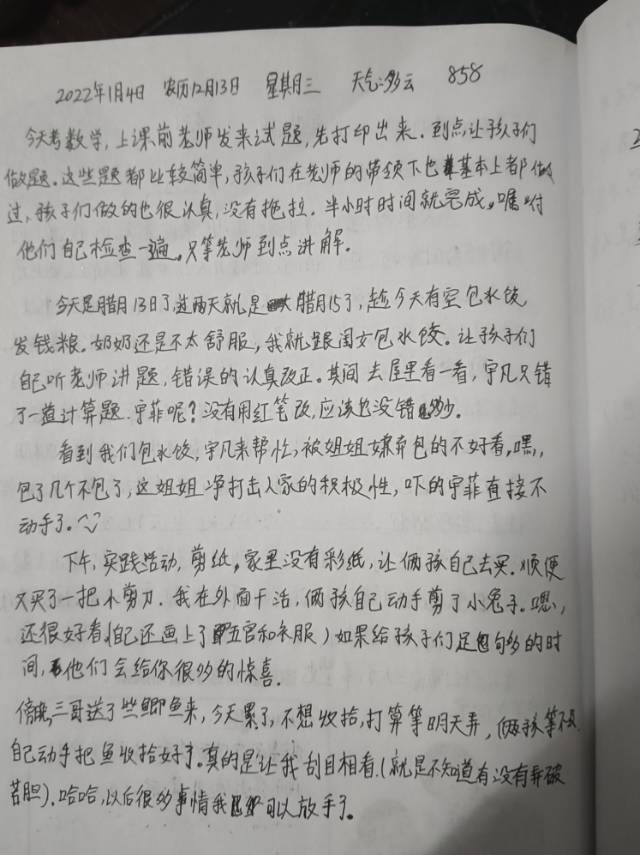 2022年1月4日 农历12月13日 星期三 天气:多云 858
今天考数学,上课前老师发来试题,先打印出来.到点让孩子们
做题.这些题都比较简单,孩子们在老师的带领下也基本上都做
过,孩子们做的也很认真,没有拖拉.半小时时间就完成。嘱咐
他们自己检查一遍。只等老师到点讲解.
今天是腊月13日了这两天就是腊月15了,趁今天有空包水饺
发钱粮.奶奶还是不太舒服,我就跟闺女包水饺.让孩子们
自己听老师讲题,错误的认真改正.其间去屋里看一看,宇凡只错
了一道计算题.宇菲呢?没有用红笔改,应该也没错多少.
看到我们包水饺,宇凡来帮忙,被姐姐嫌弃包的不好看,嘿,
包了几个不包了,这姐姐净打击人家的积极性,吓的宇菲直接不
动手了.
下午,实践活动,剪纸,家里没有彩纸,让俩孩自己去买.顺便
又买了一把小剪刀.我在外面干活,俩孩自己动手剪了小兔子.嗯,
还很好看(自己还画上了五官和衣服)如果给孩子们足够多的时
间,他们会给你很多的惊喜.
傍晚,三哥送了些鲫鱼来,今天累了,不想收拾,打算等明天弄,俩孩等不及
自己动手把鱼收拾好了.真的是让我刮目相看.(就是不知道有没有弄破
苦胆).哈哈,以后很多事情我可以放手了。